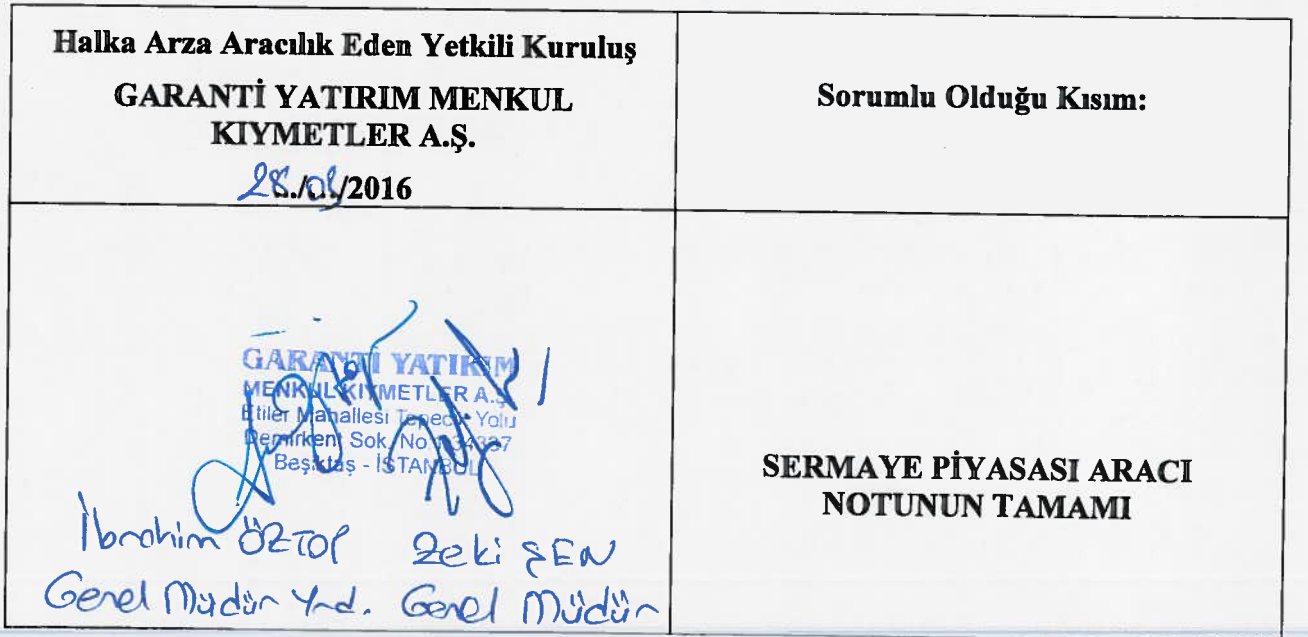 Halka Arza Aracılık Eden Yetkili Kuruluş
GARANTİ YATIRIM MENKUL
KIYMETLER A.Ş.
/2016
Sorumlu Olduğu Kısım:
GARANTİ YATIRIM
MENKUL KIYMETLER A.Ş.
Etiler Mahallesi Tepecik Yolu
Demirkent Sok. No
Beşiktaş - İSTANBUL
İbrahim ÖZTOP Zeki ŞEN
Genel Müdür Yrd. Genel Müdür
SERMAYE PİYASASI ARACI
NOTUNUN TAMAMI